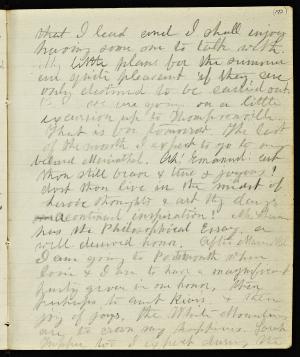 that I lead and I shall enjoy
having some one to talk with.
My little plans for the summer
are quite pleasant if they are
only destined to be carried out.
we are going on a little
excursion up to Thompsonville.
That is for tomorrow. The last
of the month I expect to go to my
Ah! Emanuel, art
thou still brave & true & joyous!
Dost thou live in the midst of
heroic thoughts & are thy days
continual inspiration!
has the Philosophical Essay, a
well deserved honor. After
I am going to Portsmouth where
& I are to have a magnificent
party given in our honor. Then
perhaps to aunt & then
joy of joys, the White Mountains
are to crown my happiness.
too I expect during the